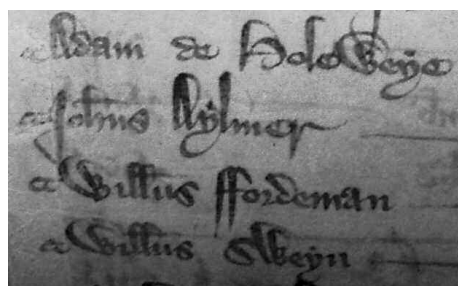 Adam de Holeweye
Joh̄nes Aylmer
Willūs ffordeman
Willūs Sweyn